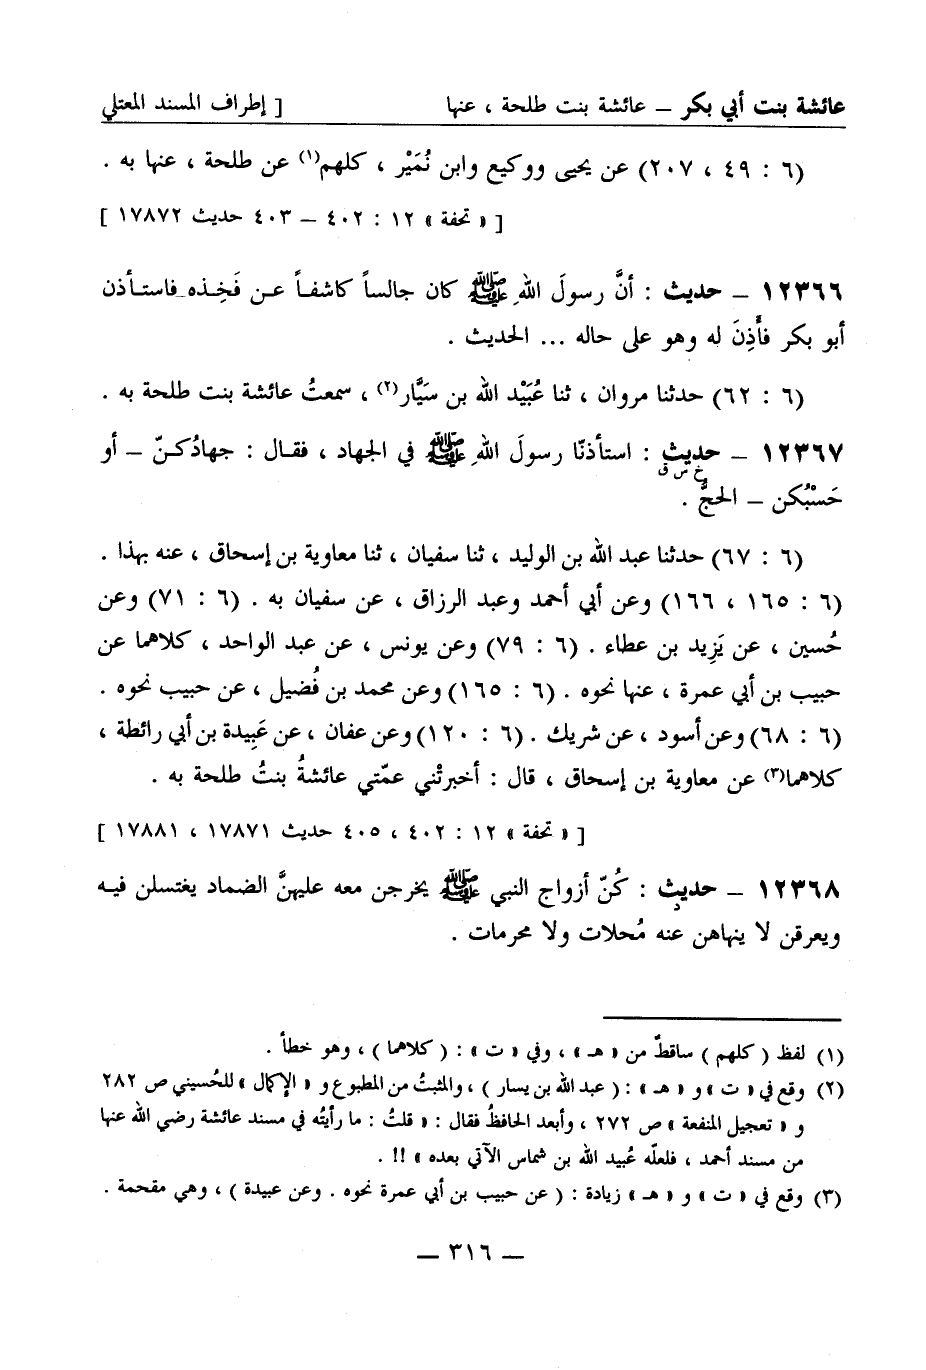 عائشة بنت أبي بكر – عائشة بنت طلحة ، عنها [ إطراف المسند المعتلي
(٦ : ٤٩ ، ٢٠٧) عن يحيى ووكيع وابن نُمَيْر ، كلهم(١) عن طلحة ، عنها به .
[ « تحفة » ١٢ : ٤٠٢ – ٤٠٣ حديث ١٧٨٧٢ ]
١٢٣٦٦ – حديث : أنَّ رسولَ اللهِ ﷺ كان جالساً كاشفاً عن فَخِذه فاستأذن
أبو بكر فأَذِنَ له وهو على حاله ... الحديث .
(٦ : ٦٢) حدثنا مروان ، ثنا عُبَيْد الله بن سَيَّار(٢) ، سمعتُ عائشة بنت طلحة به .
١٢٣٦٧ – حديث : استأذنّا رسولَ اللهِ ﷺ في الجهاد ، فقال : جهادُكنّ – أو
خ س ق
حَسْبُكن – الحجُّ .
(٦ : ٦٧) حدثنا عبد الله بن الوليد ، ثنا سفيان ، ثنا معاوية بن إسحاق ، عنه بهذا .
(٦ : ١٦٥ ، ١٦٦) وعن أبي أحمد وعبد الرزاق ، عن سفيان به . (٦ : ٧١) وعن
حُسين ، عن يَزِيد بن عطاء . (٦ : ٧٩) وعن يونس ، عن عبد الواحد ، كلاهما عن
حبيب بن أبي عمرة ، عنها نحوه . (٦ : ١٦٥) وعن محمد بن فُضيل ، عن حبيب نحوه .
(٦ : ٦٨) وعن أسود ، عن شريك . (٦ : ١٢٠) وعن عفان ، عن عَبِيدة بن أبي رائطة ،
كلاهما(٣) عن معاوية بن إسحاق ، قال : أخبرتْني عمّتي عائشةُ بنتُ طلحة به .
[ « تحفة » ١٢ : ٤٠٢ ، ٤٠٥ حديث ١٧٨٧١ ، ١٧٨٨١ ]
١٢٣٦٨ – حديث : كُنّ أزواج النبي ﷺ يخرجن معه عليهنَّ الضماد يغتسلن فيه
د
ويعرقن لا ينهاهن عنه مُحلات ولا محرمات .
(١) لفظ ( كلهم ) ساقطٌ من « هـ » ، وفي « ت » : ( كلاهما ) ، وهو خطأ .
(٢) وقع في « ت » و « هـ » : ( عبد الله بن يسار ) ، والمثبتُ من المطبوع و « الإكمال » للحُسيني ص ٢٨٢
و « تعجيل المنفعة » ص ٢٧٢ ، وأبعد الحافظُ فقال : « قلتُ : ما رأيتُه في مسند عائشة رضي الله عنها
من مسند أحمد ، فلعلّه عُبيد الله بن شماس الآتي بعده » !! .
(٣) وقع في « ت » و « هـ » زيادة : ( عن حبيب بن أبي عمرة نحوه . وعن عبيدة ) ، وهي مقحمة .
– ٣١٦ –